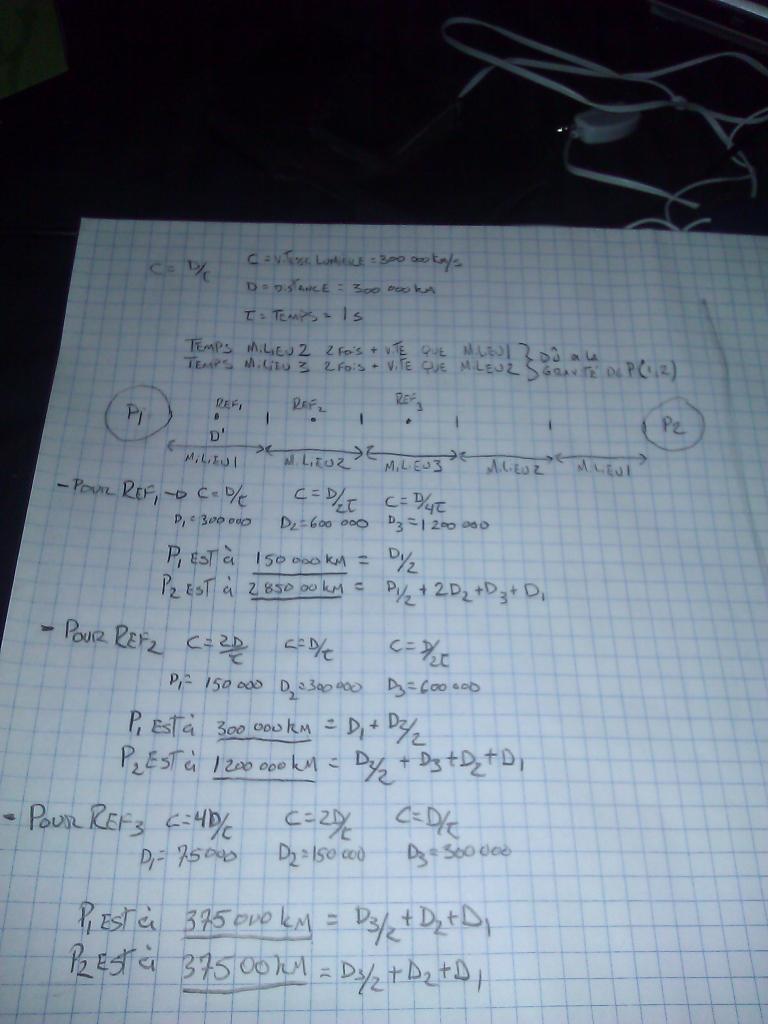 C = D/t C = VITESSE LUMIERE = 300 000 km/s
D = DISTANCE = 300 000 km
t = TEMPS = 1 s
TEMPS MILIEU 2 2 FOIS + VITE QUE MILIEU 1 } DÛ A LA
TEMPS MILIEU 3 2 FOIS + VITE QUE MILIEU 2 } GRAVITÉ DE P(1,2)
P1 REF1 REF2 REF3 P2
D'
MILIEU 1 MILIEU 2 MILIEU 3 MILIEU 2 MILIEU 1
- POUR REF1 → C = D/t C = D/2t C = D/4t
D1 = 300 000 D2 = 600 000 D3 = 1 200 000
P1 EST à 150 000 km = D1/2
P2 EST à 2 850 00 km = D1/2 + 2D2 + D3 + D1
- POUR REF2 C = 2D/t C = D/t C = D/2t
D1 = 150 000 D2 = 300 000 D3 = 600 000
P1 EST à 300 000 km = D1 + D2/2
P2 EST à 1 200 000 km = D2/2 + D3 + D2 + D1
- POUR REF3 C = 4D/t C = 2D/t C = D/t
D1 = 75 000 D2 = 150 000 D3 = 300 000
P1 EST à 375 000 km = D3/2 + D2 + D1
P2 EST à 375 00 km = D3/2 + D2 + D1